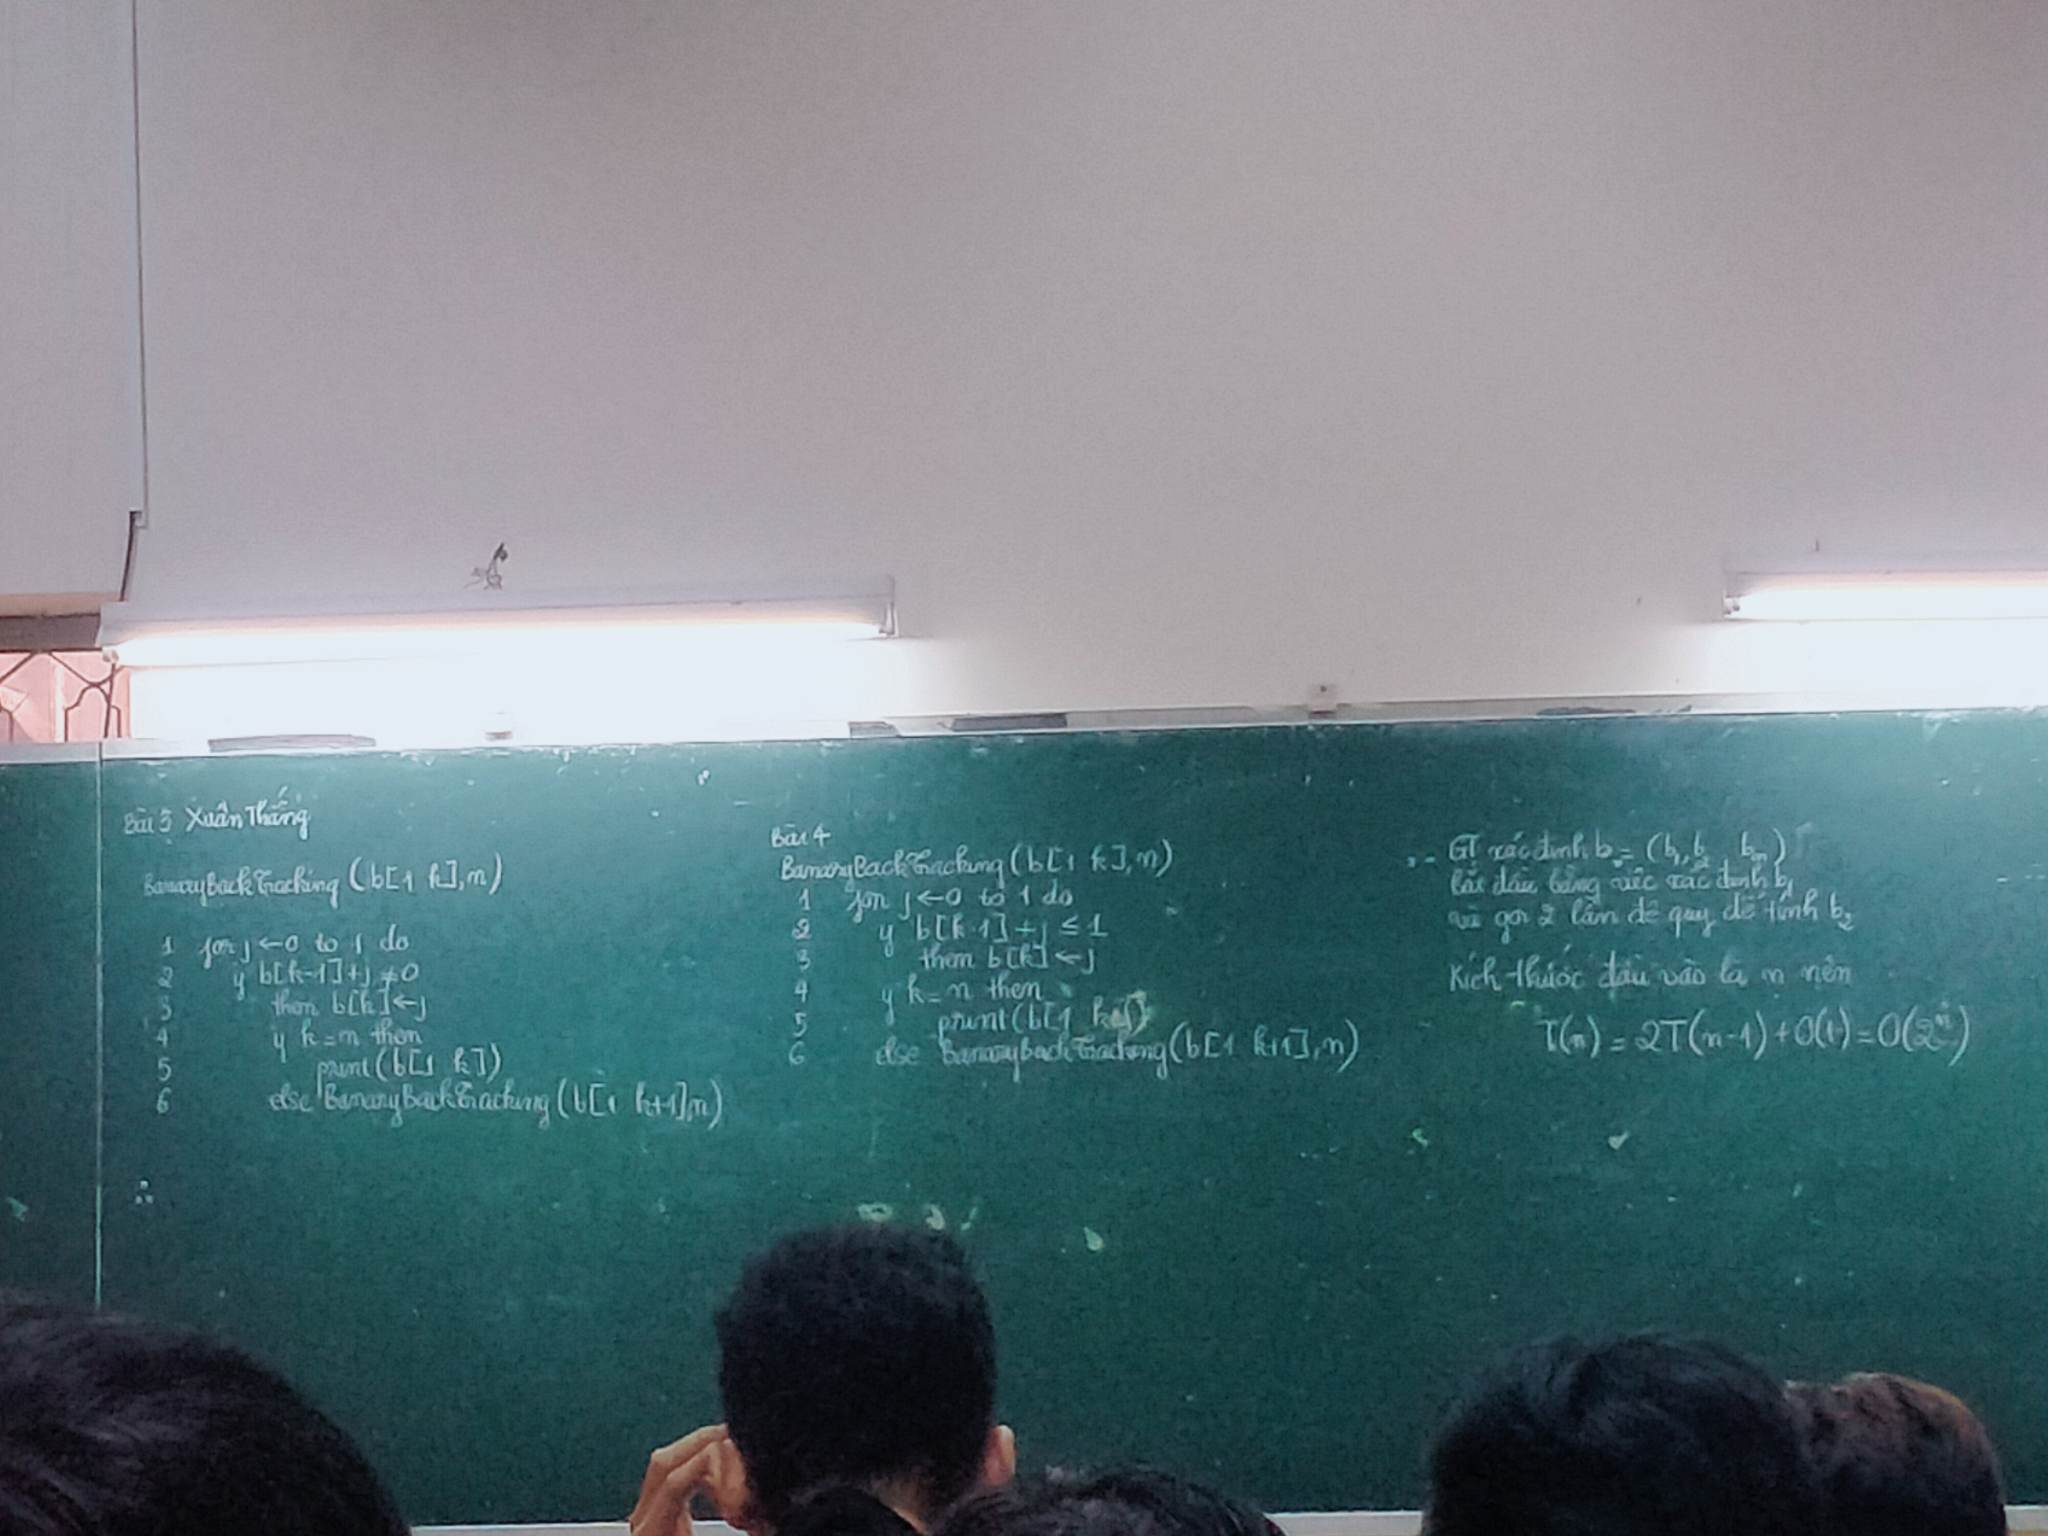 Bài 3 Xuân Thắng
BanaryBackTracking (b[1 k], n)
1 for j ← 0 to 1 do
2 if b[k-1]+j ≠ 0
3 then b[k] ← j
4 if k = n then
5 print(b[1 k])
6 else BanaryBackTracking (b[1 k+1], n)
Bài 4
BanaryBackTracking (b[1 k], n)
1 for j ← 0 to 1 do
2 if b[k-1] + j ≤ 1
3 then b[k] ← j
4 if k = n then
5 print(b[1 k])
6 else BanaryBackTracking (b[1 k+1], n)
GT xác định b = (b₁, b₂ bₙ)
bắt đầu bằng việc xác định b₁
và gọi 2 lần đệ quy để tính b₂
Kích thước đầu vào là n nên
T(n) = 2T(n-1) + O(1) = O(2ⁿ)